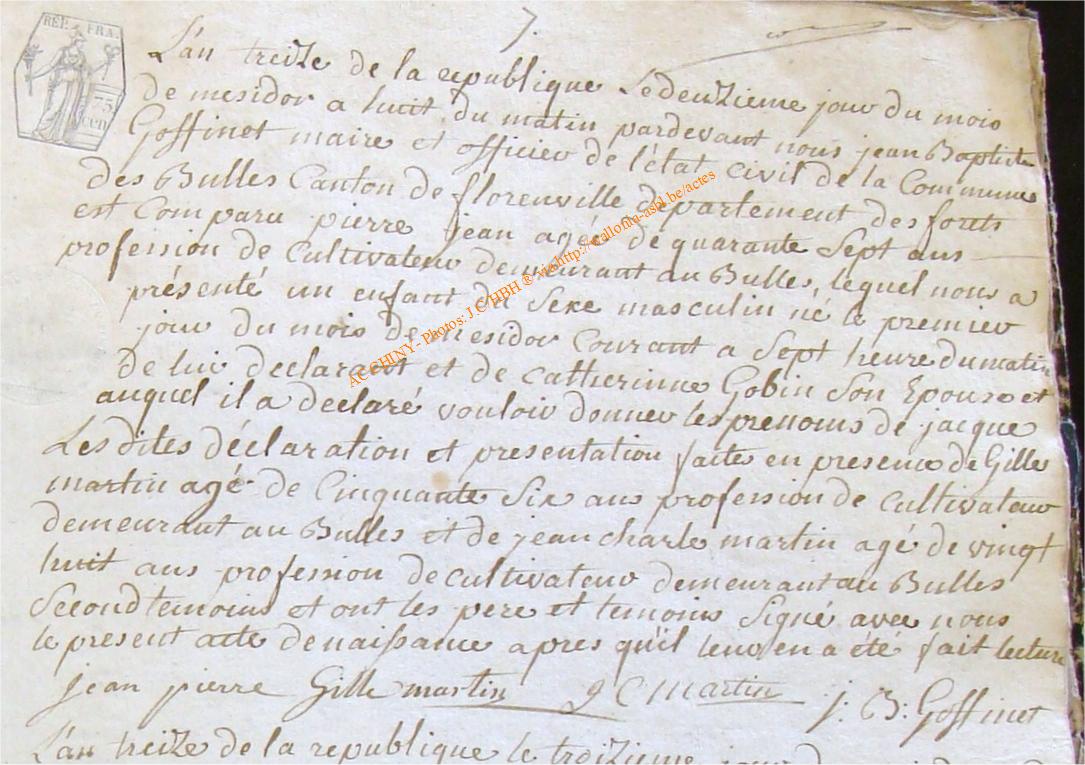 7.
RÉP. FRA.
75
CEN
L'an treize de la republique Ledeuzieme jour du mois
de mesidor a huit du matin pardevant nous jean Baptiste
Goffinet maire et officier de l'état civil de la Commune
des Bulles Canton de florenville département des forets
est Comparu pierre jean agée de quarante Sept ans
profession de Cultivateur demeurant au Bulles, lequel nous a
présenté un enfant du Sexe masculin né le premier
jour du mois de mesidor Courant a Sept heure du matin
de lui declarant et de Catherinne Gobin Son Epouse et
auquel il a declaré vouloir donner les prenoms de jacque
Les dites déclaration et presentation faite en presence de Gille
martin agé de Cinquante Six ans profession de Cultivateur
demeurant au Bulles et de jean charle martin agé de vingt
huit ans profession de cultivateur demeurant au Bulles
Second temoins et ont les pere et temoins Signé avec nous
le present acte de naissance apres qu'il leur en a été fait lecture
jean pierre Gille martin J C martin j: B: Goffinet
L'an treize de la republique le troizieme jour
ACCHINY - Photos: J.C HBH ® via http://wallonia-asbl.be/actes